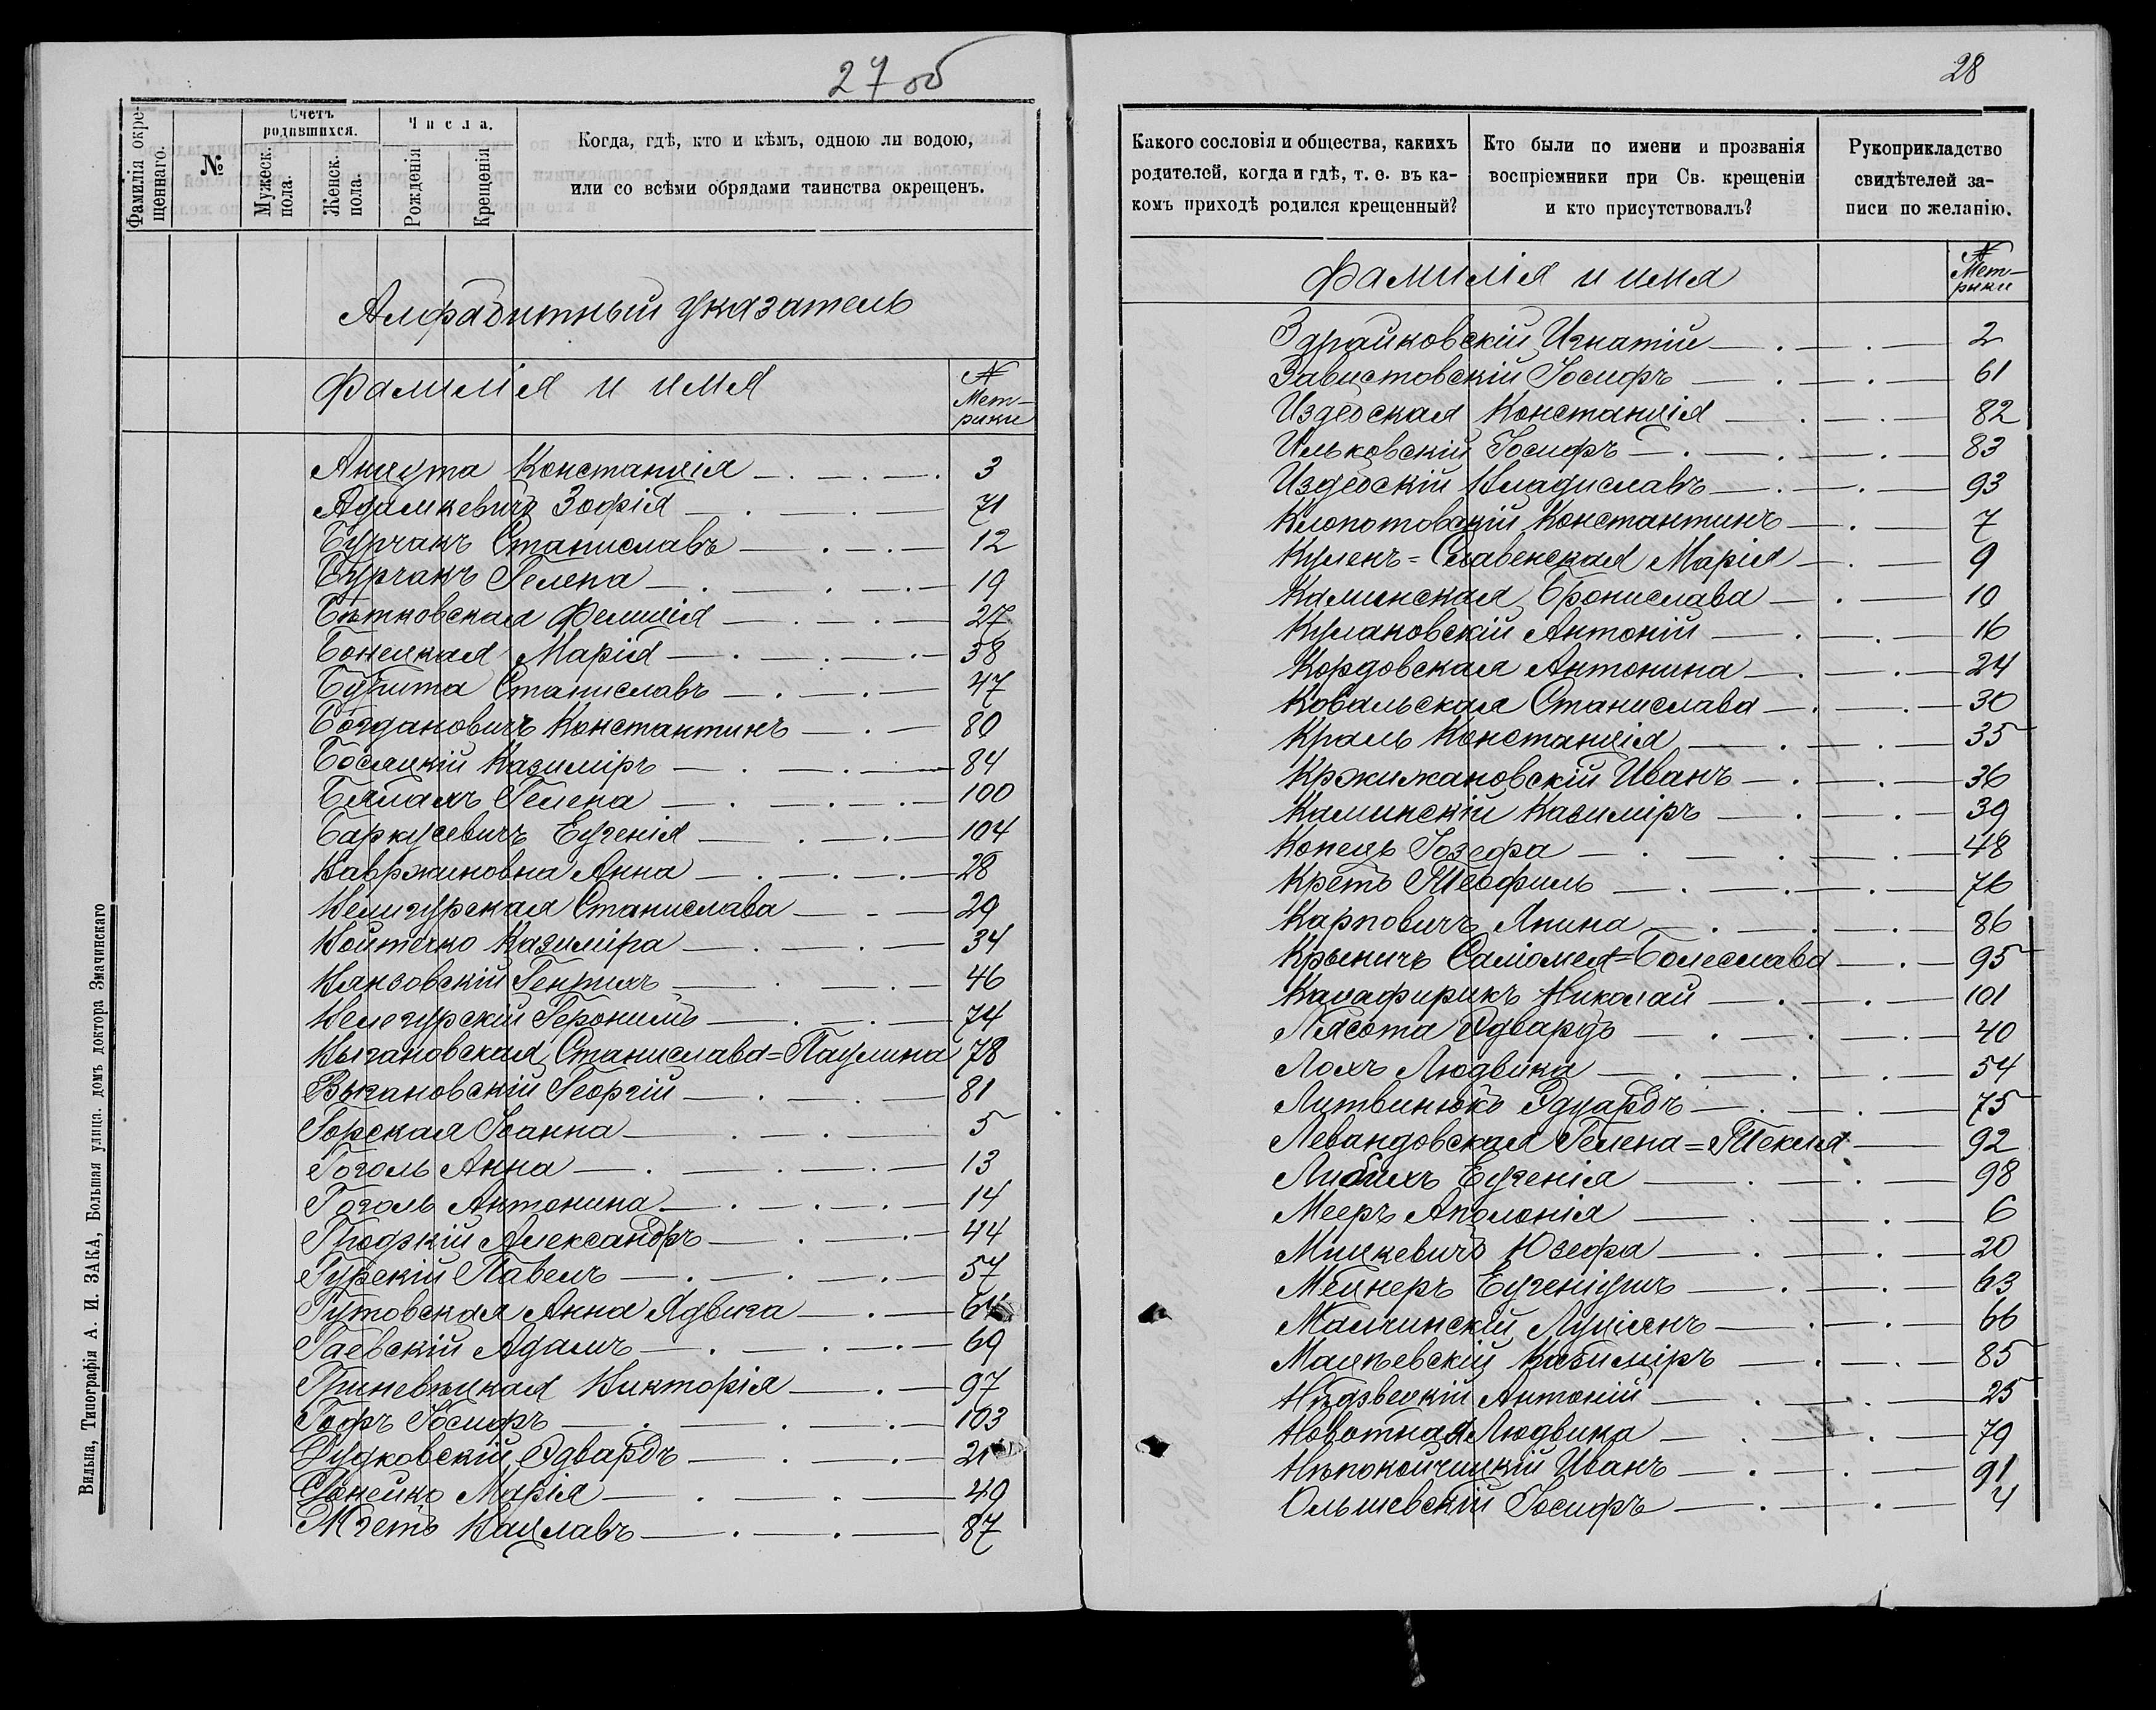 27 об
Фамилія окрещеннаго.
№
Счетъ родившихся.
Мужеск. пола.
Женск. пола.
Числа.
Рожденія
Крещенія
Когда, гдѣ, кто и кѣмъ, одною ли водою,
или со всѣми обрядами таинства окрещенъ.
Алфабитный указатель
Фамилія и имя
№ Мет-
рики
Анцута Констанція 3
Адамкевичъ Зофія 71
Бурчакъ Станиславъ 12
Бурчакъ Гелена 19
Бѣтковская Фелиція 27
Бонецкая Марія 38
Бурита Станиславъ 47
Богдановичъ Константинъ 80
Босяцкій Казиміръ 84
Бялахъ Гелена 100
Баркусевичъ Еугенія 104
Вавржиновна Анна 28
Велигурская Станислава 29
Войтечко Казиміра 34
Вянзовскій Генрихъ 46
Велегурскій Геронимъ 74
Выгановская Станислава=Паулина 78
Выгановскій Георгій 81
Горская Іоанна 5
Гоголь Анна 13
Гоголь Антонина 14
Александръ 44
Гурскій Павелъ 57
Гутовская Анна Ядвига 64
Гаевскій Адамъ 69
Гриневицкая Викторія 97
Гофъ Іосифъ 103
Дудковскій Эдвардъ 21
Марія 49
Жгеть Вацлавъ 87
Вильна, Типографія А. И. ЗАКА, Большая улица. домъ доктора Змачинскаго
28
Какого сословія и общества, какихъ
родителей, когда и гдѣ, т. е. въ ка-
комъ приходѣ родился крещенный?
Кто были по имени и прозванія
воспріемники при Св. крещеніи
и кто присутствовалъ?
Рукоприкладство
свидѣтелей за-
писи по желанію.
Фамилія и имя
№ Мет-
рики
Здрайковскій Игнатій 2
Завистовскій Іосифъ 61
Издебская Констанція 82
Ильковскій Іосифъ 83
Издебскій Владиславъ 93
Клопотовскій Константинъ 7
Кулекъ=Славенская Марія 9
Каминская Бронислава 10
Кулаковскій Антоній 16
Кордовская Антонина 24
Ковальская Станислава 30
Краль Констанція 35
Кржижановскій Иванъ 36
Каминскій Казиміръ 39
Копець Іозефа 48
Кретъ Теофиль 76
Карповичъ Янина 86
Крыничъ Саломея=Болеслава 95
Калафирикъ Николай 101
Лясота Эдвардъ 40
Лохъ Людвика 54
Литвинюкъ Эдуардъ 75
Левандовская Гелена=Текля 92
Либихъ Еугенія 98
Мееръ Аполонія 6
Мицкевичъ Юзефа 20
Мейнеръ Еугеніушъ 63
Малчинскій Луціянъ 66
Мацѣевскій Казиміръ 85
Нѣдзвецкій Антоній 25
Новотная Людвика 79
Нѣпокойчицкій Иванъ 91
Ольшевскій Іосифъ 4